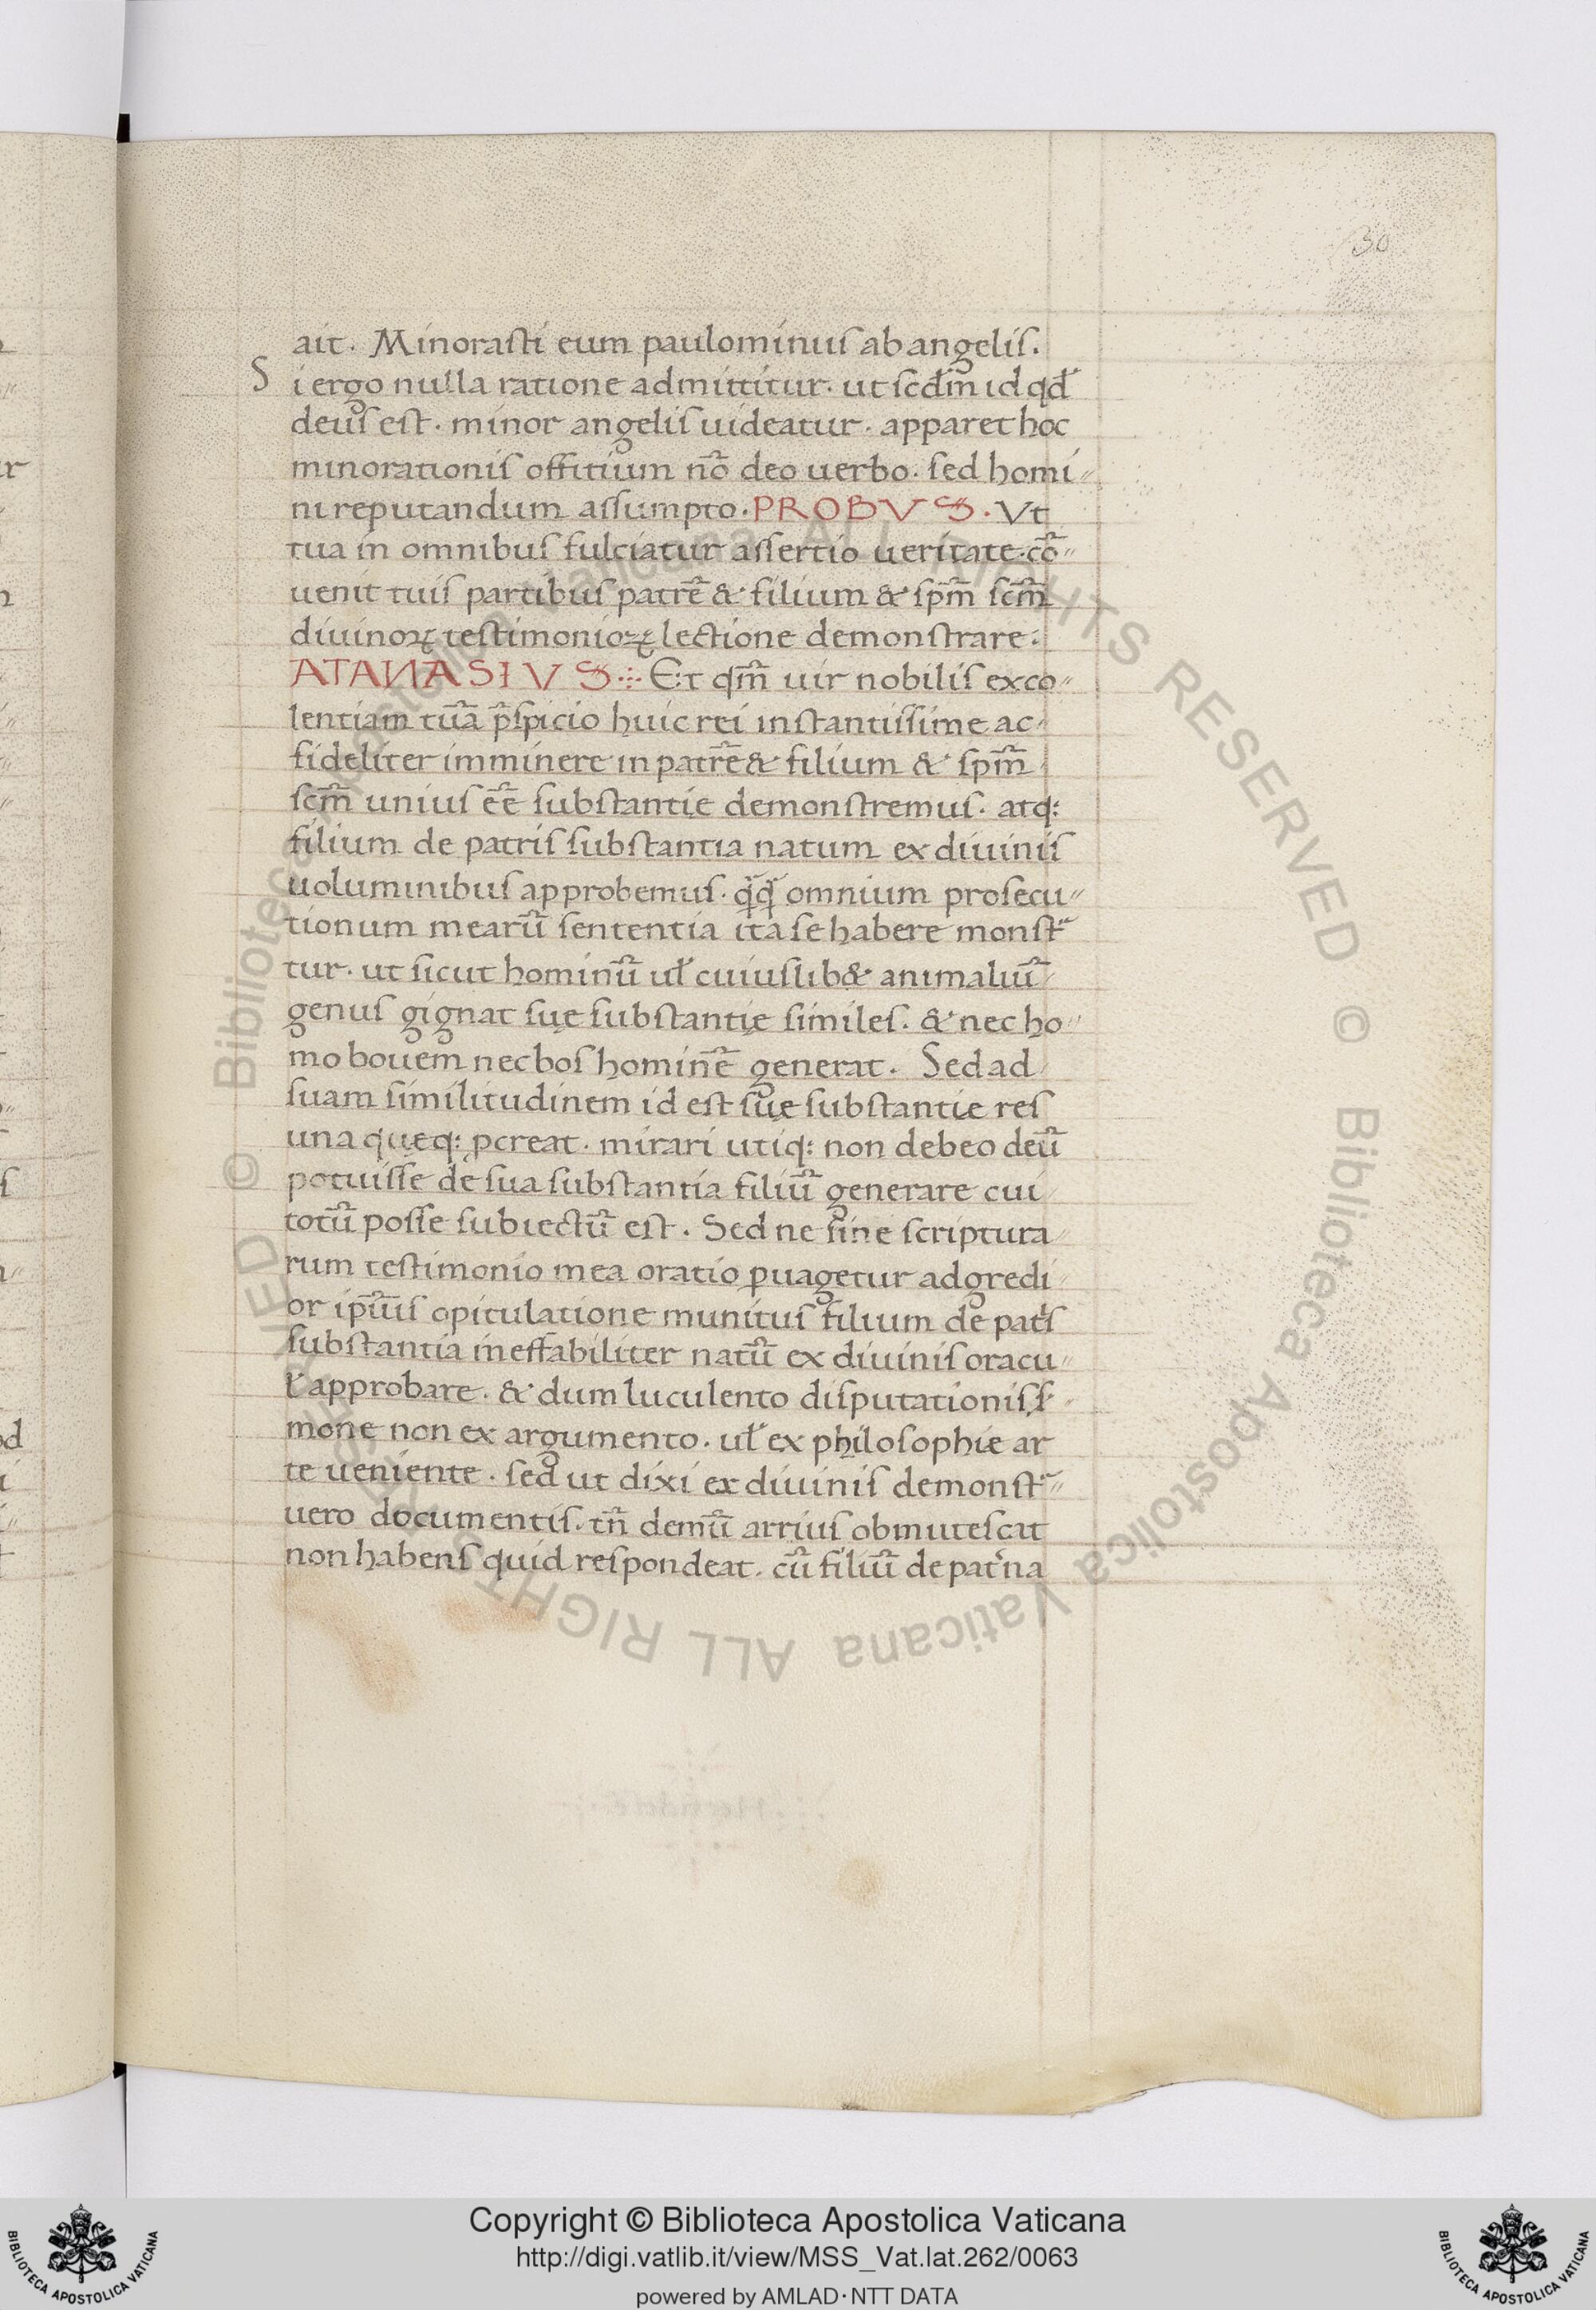 30
ait. Minorasti eum paulominus ab angelis.
Si ergo nulla ratione admittitur. ut scd̄m id qd̄
deus est. minor angelis uideatur. apparet hoc
minorationis offitium nō deo uerbo. sed homi
ni reputandum assumpto. PROBVS. Vt
tua in omnibus fulciatur assertio ueritate. cō
uenit tuis partibus patrē & filium & sp̄m sc̄m
diuinoꝝ testimonioꝝ lectione demonstrare.
ATANASIVS. Et qm̄ uir nobilis exco
lentiam tuā p̄spicio huic rei instantissime ac
fideliter imminere in patrē & filium & sp̄m
sc̄m unius eē̄ substantie demonstremus. atq:
filium de patris substantia natum ex diuinis
uoluminibus approbemus. q̄q̄ omnium prosecu
tionum mearū sententia ita se habere monst̄
tur. ut sicut hominū ul̄ cuiuslib& animaliū
genus gignat suę substantię similes. & nec ho
mo bouem nec bos hominē generat. Sed ad
suam similitudinem id est suę substantie res
una quęq: ꝓcreat. mirari utiq: non debeo deū
potuisse de sua substantia filiū generare cui
totū posse subiectū est. Sed ne sine scriptura
rum testimonio mea oratio ꝑuagetur adgredi
or ip̄ius opitulatione munitus filium de pat̄s
substantia ineffabiliter natū ex diuinis oracu
l̄ approbare. & dum luculento disputationis s̄
mone non ex argumento. ul̄ ex philosophie ar
te ueniente. sed ut dixi ex diuinis demonst̄
uero documentis. tn̄ demū arrius obmutescat
non habens quid respondeat. cū filiū de pat̄na
© Biblioteca Apostolica Vaticana ALL RIGHTS RESERVED
Copyright © Biblioteca Apostolica Vaticana
http://digi.vatlib.it/view/MSS_Vat.lat.262/0063
powered by AMLAD·NTT DATA
BIBLIOTECA APOSTOLICA VATICANA
BIBLIOTECA APOSTOLICA VATICANA